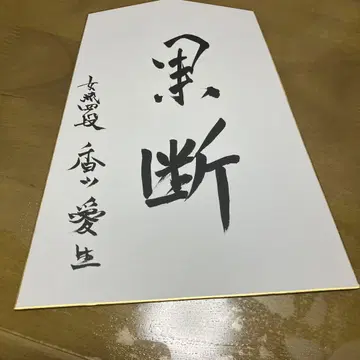 果断
女流四段 香川愛生